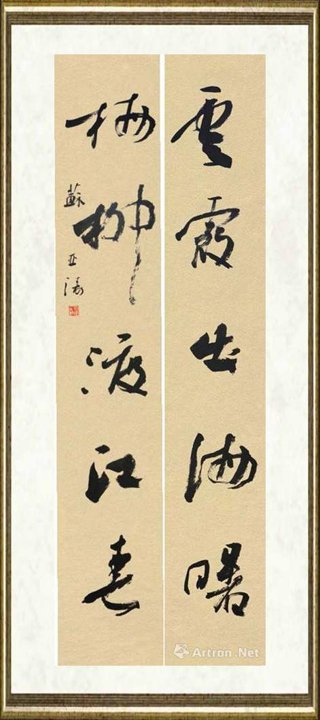 雲霞出海曙
梅柳渡江春
蘇亚濤
Artron.Net